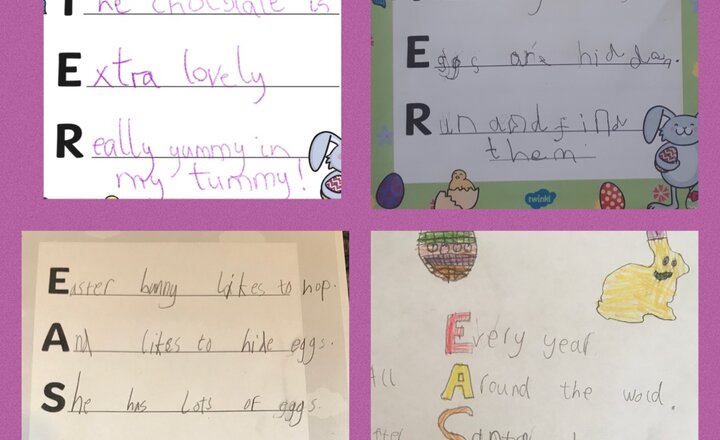 The chocolate is
Extra lovely
Really yummy in
my tummy!
Eggs are hiddan.
Run and find
them
twinkl
Easter bunny likes to hop.
And likes to hide eggs.
She has lots of eggs.
Every year
All Around the world.